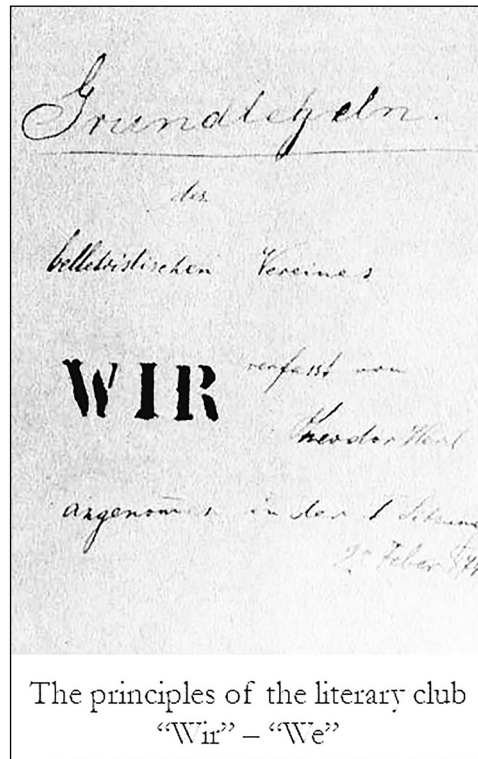 Grundregeln.
des
belletristischen Vereines
WIR verfasst von
Theodor Herzl
angenommen in der 1 Sitzung
Feber
The principles of the literary club
“Wir” – “We”